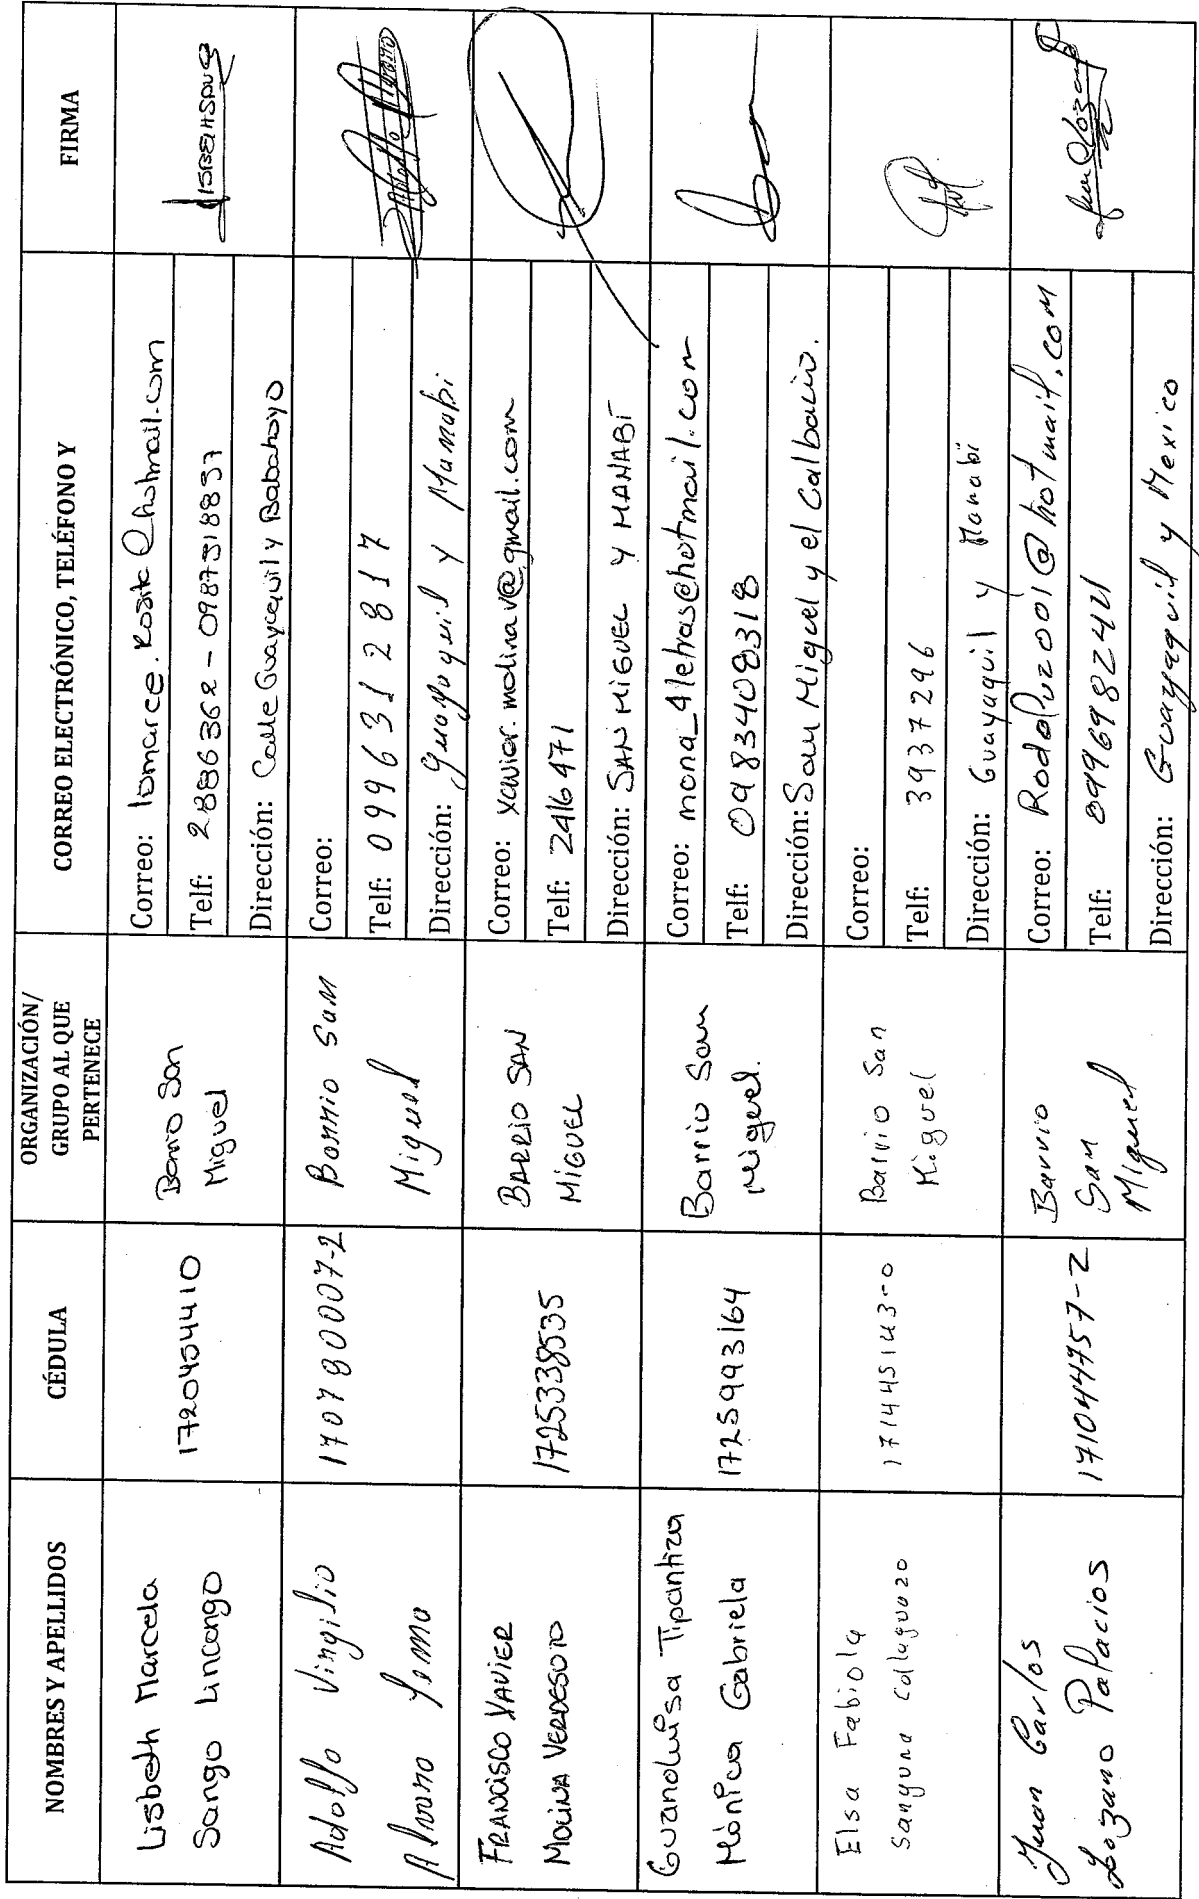 NOMBRES Y APELLIDOS
CÉDULA
ORGANIZACIÓN/
GRUPO AL QUE
PERTENECE
CORREO ELECTRÓNICO, TELÉFONO Y
FIRMA
Lisbeth Marcela
Sango Lincango
1720454410
Barrio San
Miguel
Correo:
Telf: 2886362 - 0987318837
Dirección: Calle Guayaquil y Babahoyo
Adolfo Virgilio
170780007-2
Barrio San
Miguel
Correo:
Telf: 0996312817
Dirección: Guayaquil y Manabi
FRANCISCO XAVIER
MOLINA VERDESOTO
1725338535
BARRIO SAN
MIGUEL
Correo: xavier.molinav@gmail.com
Telf: 2416471
Dirección: SAN MIGUEL Y MANABÍ
Guanoluisa Tipantiza
Mónica Gabriela
1725993164
Barrio San
Miguel.
Correo: mona_4letras@hotmail.com
Telf: 0983408318
Dirección: San Miguel y el Calbario.
Elsa Fabiola
Sanguna Collaguazo
171445143-0
Barrio San
Miguel
Correo:
Telf: 3937296
Dirección: Guayaquil y Manabi
Juan Carlos
Lozano Palacios
171044757-2
Barrio
San
Miguel
Correo: Rodoluz001@hotmail.com
Telf: 0996982424
Dirección: Guayaquil y Mexico